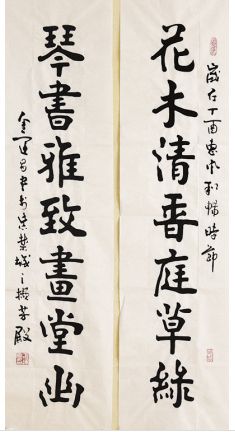 歲在丁酉惠風和暢時節
花木清香庭草綠
琴書雅致畫堂幽
金運昌書於紫禁城之擷芳殿